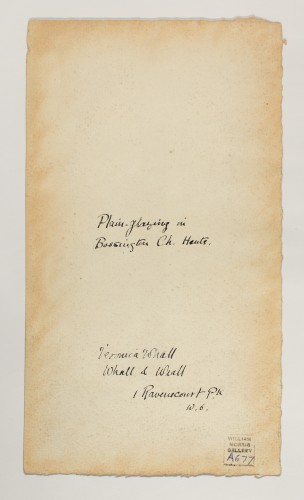 Plain-glazing in
Bossington Ch. Hants.
Veronica Whall
Whall & Whall
1 Ravenscourt Pk
W.6.
WILLIAM
MORRIS
GALLERY
A677